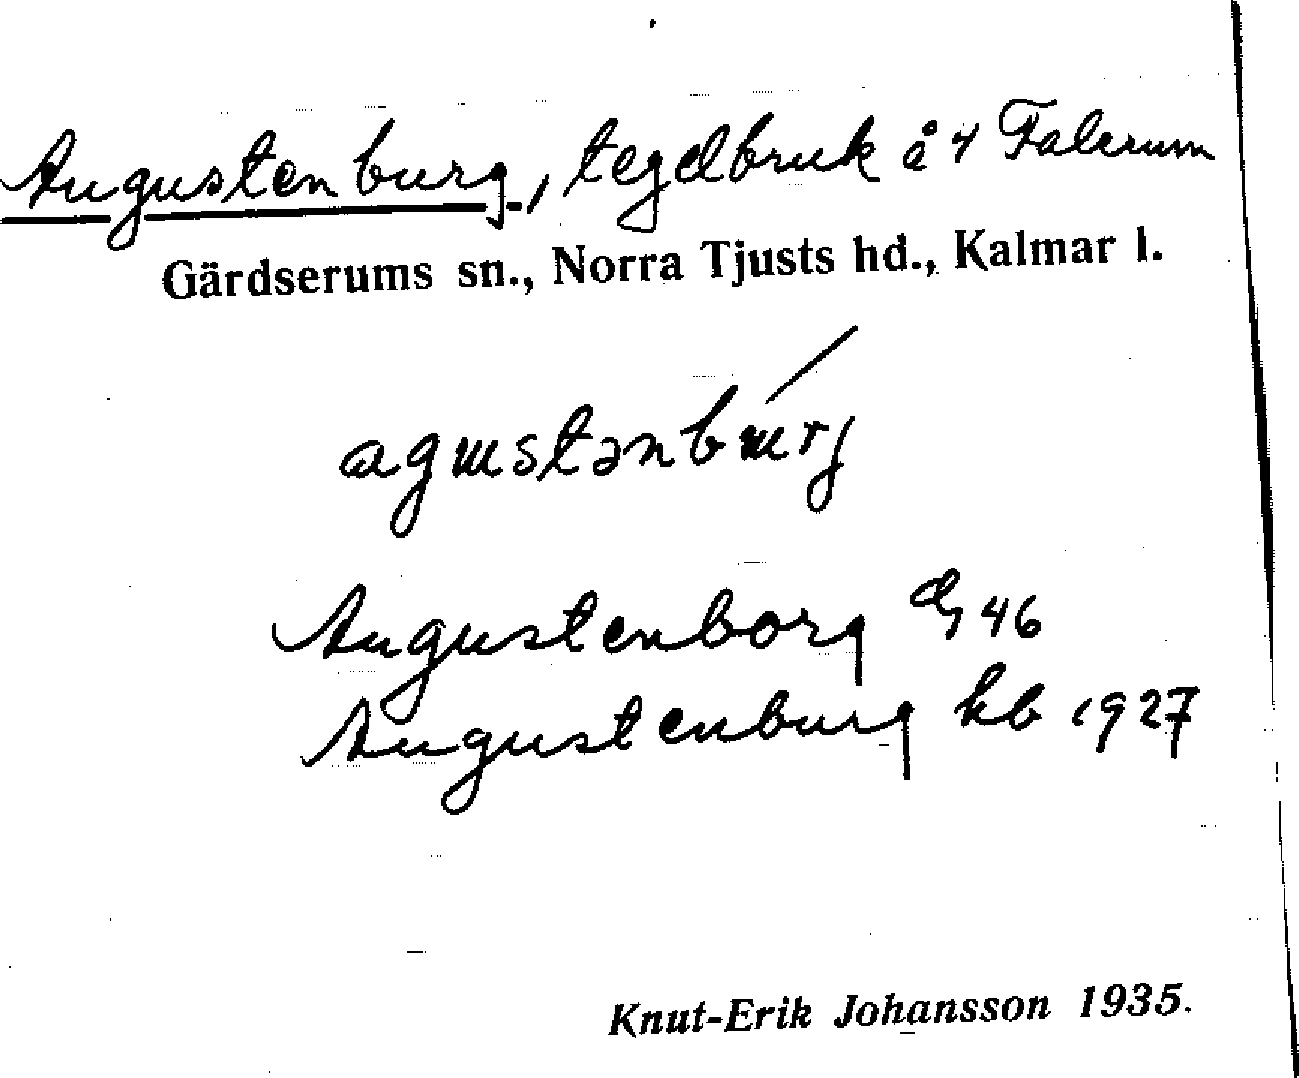 Augustenburg, tegelbruk å 4 Falerum
Gärdserums sn., Norra Tjusts hd., Kalmar l.
agustənburj
Augustenborg 46
Augustenburg hb 1927
Knut-Erik Johansson 1935.